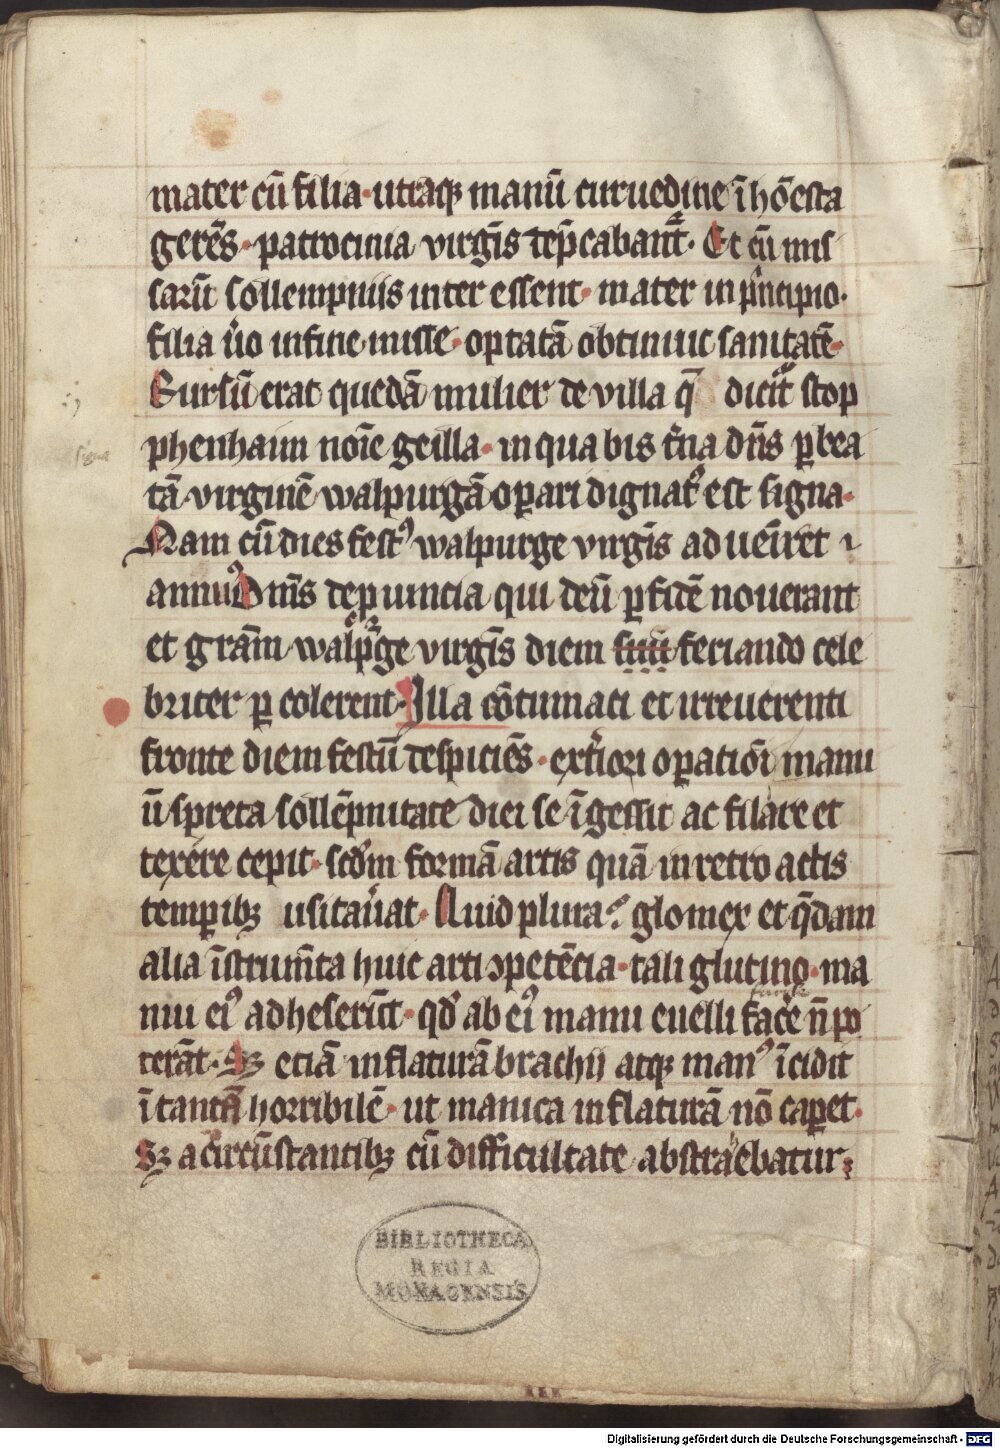 mater cū filia · utraq; manū curuedine īhōesta
gerēs · patrocinia virgīs dep̄cabant᷑ · Et cū mis
sarū sollempniis inter essent · mater in pⁱncipio ·
filia u̾o in fine misse · optatā obtinuit sanitatē ·
Rursū erat quedā mulier de villa q̄ dicit᷑ stop
phenhaim noīe geilla · in qua bis t̾na dn̄s ꝑ bea
tā virginē walpurgā oꝑari dignat᷑ est signa ·
Nam cū dies festꝰ walpurge virgīs adueīret
annuꝰ Om̄s de ꝓuincia qui deū ꝑ fidē nouerant
et gr̄am walpᷣge virgīs diem feriando cele
briter ꝑcolerent · Illa cōtumaci et irreuerenti
fronte diem festū despiciēs · ext̾iori oꝑatiōi manu
ū spreta sollēpnitate diei se īgessit ac filare et
texere cepit · scdm̄ formā artis quā in retro actis
temꝑib; usitau̾at · Quid plura? glomex et q̄dam
alia īstrum̄ta huic arti ꝯpetēcia · tali glutino · ma
nui eiꝰ adheserūt · qd̾ ab eiꝰ manu euelli facɛ̄ n̄ po
terāt · S; etiā inflaturā brachij atq; manꝰ īcidit
ī tantā horribilē · ut manica inflaturā nō caꝑet ·
S; a circūstantib; cū difficultate abstraebatur ·
BIBLIOTHECA
REGIA
MONACENSIS
Digitalisierung gefördert durch die Deutsche Forschungsgemeinschaft - DFG